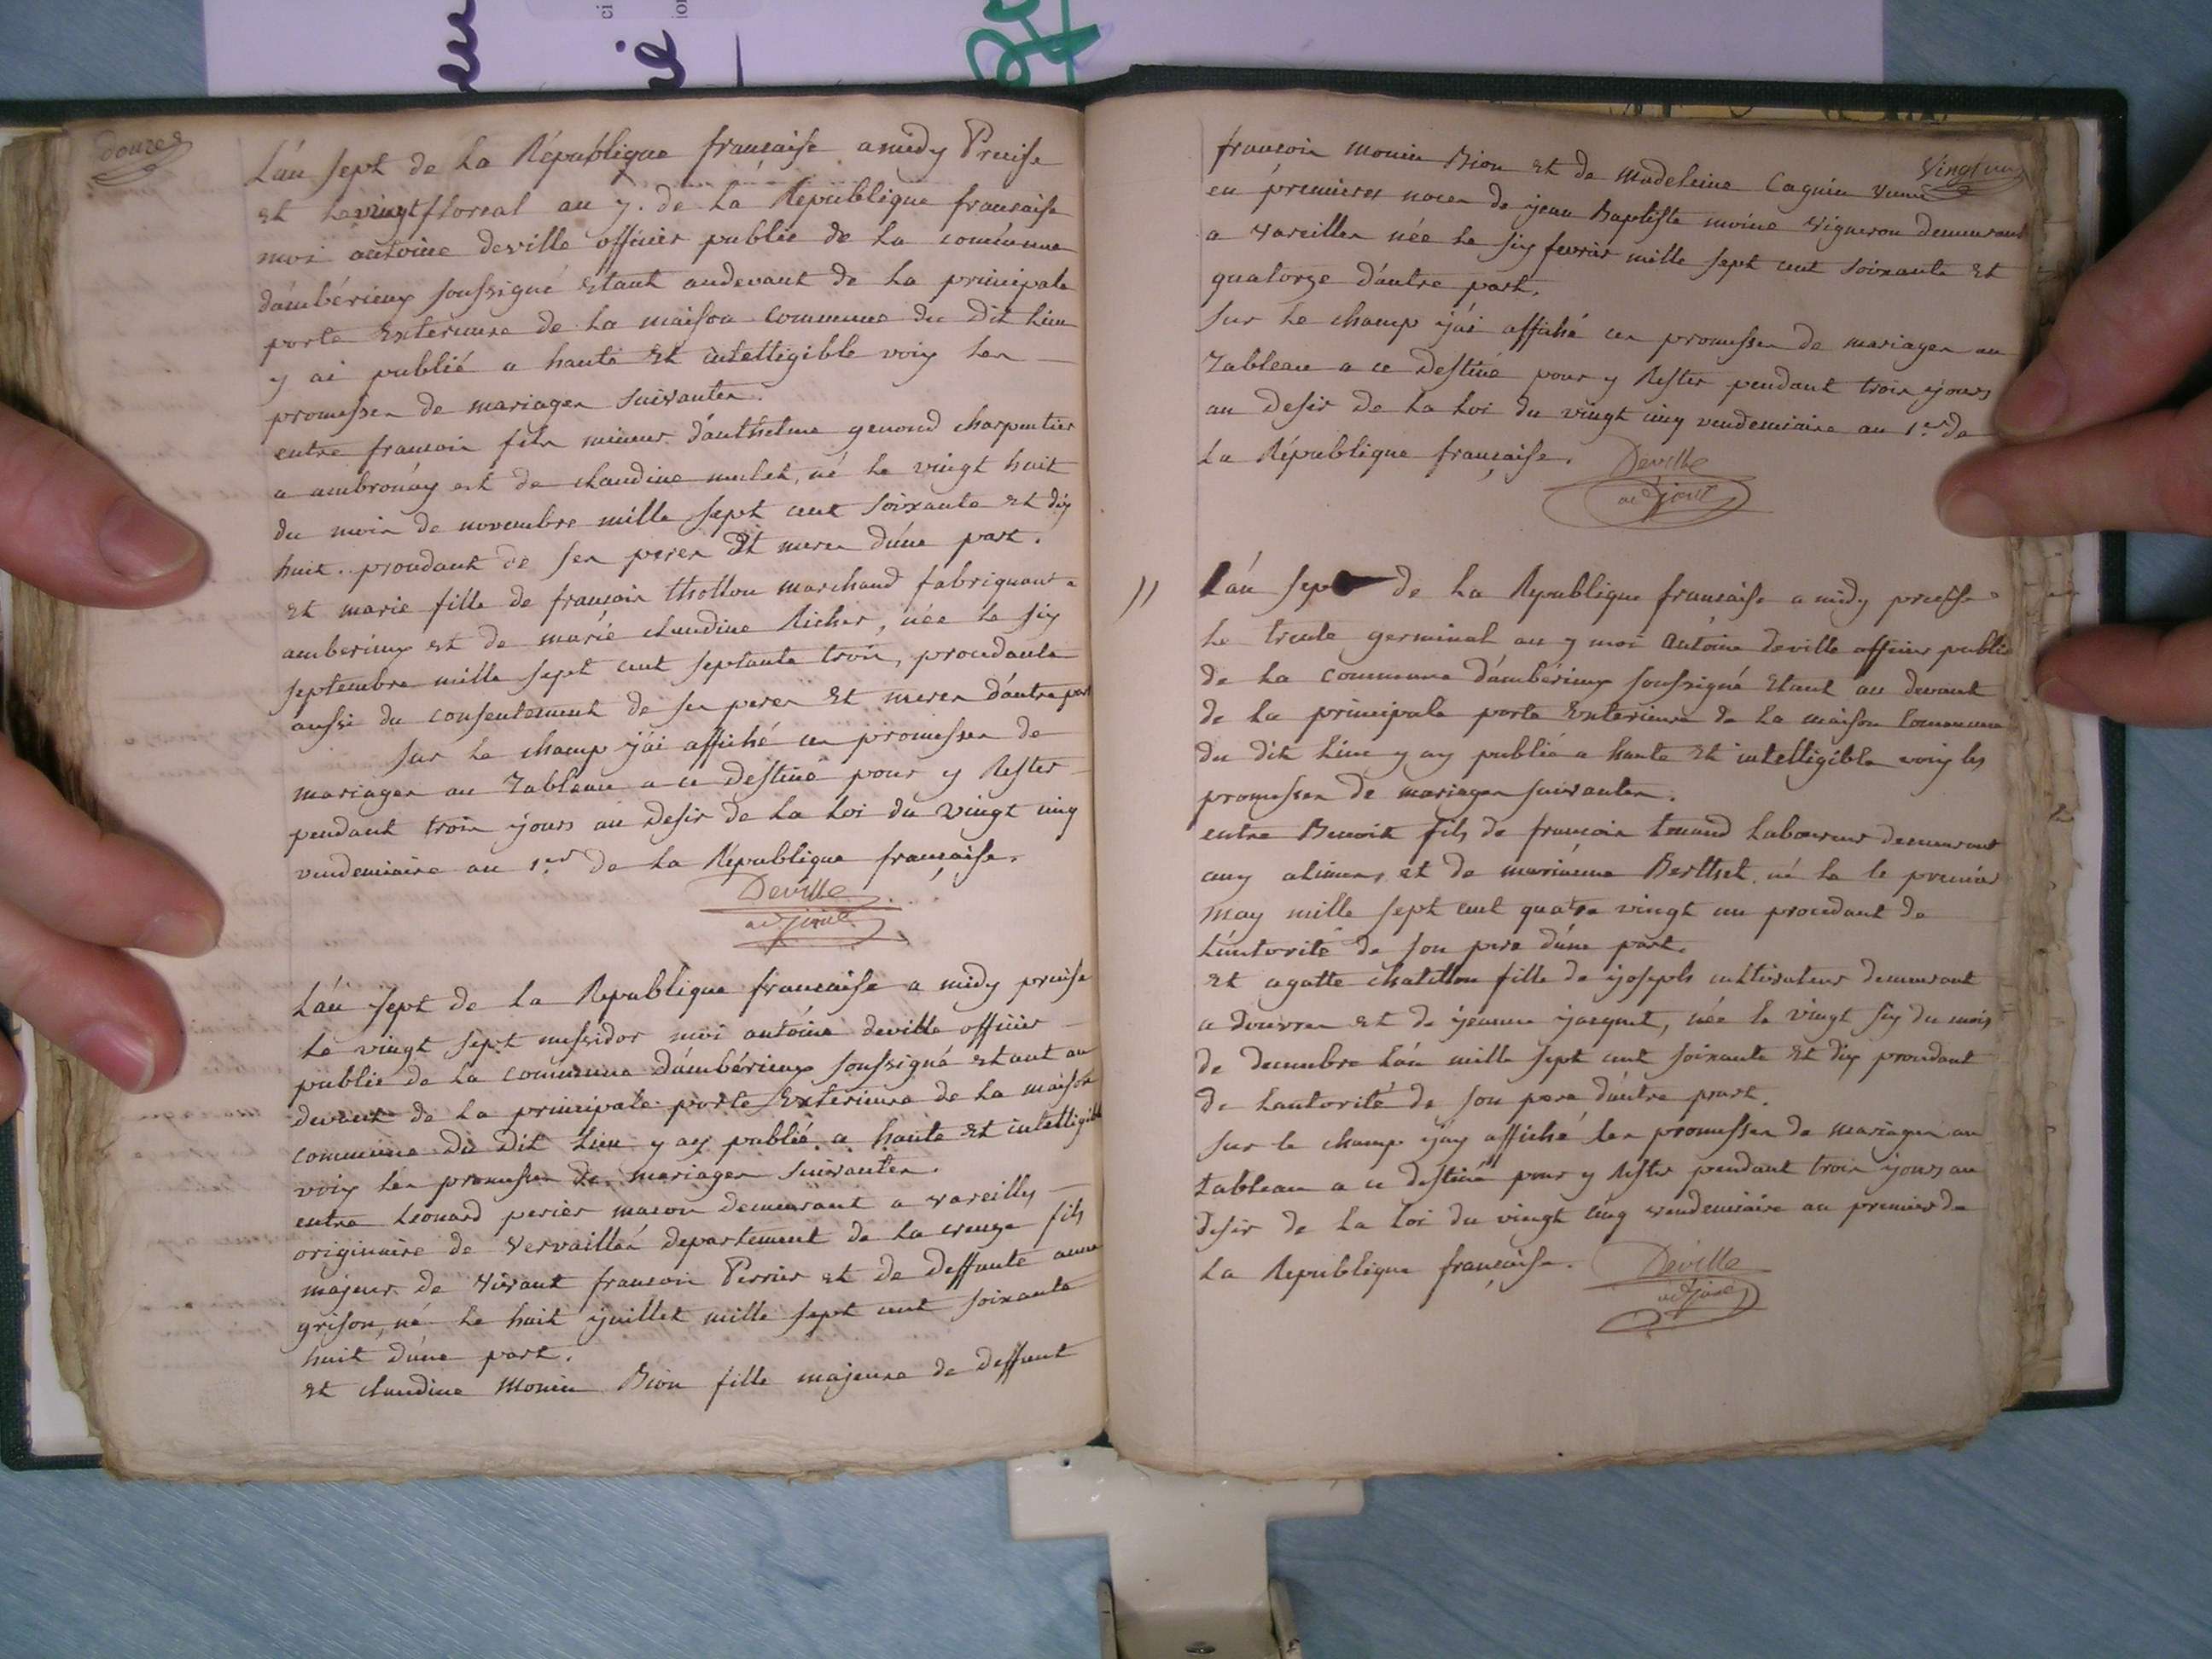 douze
L'an sept de La République française a midy Precise
et le vingt floreal an 7. de La République française
moi antoine deville officier public de La commune
d'ambérieux soussigné Etant audevant de La principale
porte Exterieure de La maison Commune du Dit Lieu
y ai publié a haute Et intelligible voix les
promesses de mariages suivantes.
entre francois fils mineur d'anthelme genoud charpentier
a ambronay et de claudine mulet, né Le vingt huit
du mois de novembre mille sept cent soixante Et dix
huit. procdant de ses peres Et meres d'une part.
Et marie fille de francois thollon marchand fabriquant a
amberieux et de marie claudine Richer, née Le six
septembre mille sept cent septante trois, procedante
aussi du consentement de ses peres Et meres d'autre part
Sur Le champ j'ai affiché ces promesses de
mariages au Tableau a ce Destiné pour y Rester
pendant trois jours au Desir de La Loi du vingt cinq
vendemiaire an 1.er de La République française.
Deville
adjoint
L'an sept de La Republique française a midy precise
Le vingt sept messidor moi antoine deville officier
public de La commune d'ambérieux soussigné Etant au
devant de La principale porte Exterieure de La maison
commune du Dit Lieu y ay publié a haute Et intelligible
voix les promesses de mariages suivantes.
entre Leonard perier macon demeurant a vareilles
originaire de Vervaillé departement de La creuse fils
majeur de vivant francois Perrier et de deffunte anne
grison, né Le huit juillet mille sept cent soixante
huit d'une part.
Et claudine Monin Bion fille majeure de deffunt
Vingt un
francois monin Bion Et de Madeleine Cagnin veuve
en premieres noces de jean Baptiste moine vigneron demeurant
a vareilles née Le six fevrier mille sept cent soixante Et
quatorze d'autre part.
Sur Le champ j'ai affiché ces promesses de mariages au
Tableau a ce Destiné pour y Rester pendant trois jours
au Desir de La Loi du vingt cinq vendemiaire an 1.er de
La République française.
Deville
adjoint
L'an sept de La Republique française a midy presise
Le trente germinal an 7 moi Antoine deville officier public
de La commune d'ambérieux soussigné Etant au devant
de La principale porte Exterieure de La maison Commune
du dit Lieu y ay publié a haute Et intelligible voix les
promesses de mariages suivantes.
entre Benoit fils de francois tenand Laboureur demeurant
auy alimes et de mariéme Berthet. né Le le premier
may mille sept cent quatre vingt un procedant de
L'autorité de son pere d'une part.
Et agatte chatillon fille de joseph cultivateur demeurant
a douvres et de jeanne jacquet, née Le vingt six du mois
de decembre L'an mille sept cent soixante Et dix procdant
de Lautorité de son pere d'autre part.
Sur le champ j'ay affiché les promesses de mariages au
tableau a ce destiné pour y Rester pendant trois jours au
desir de La Loi du vingt cinq vendemiaire an premier de
La Republique française.
Deville
adjoint